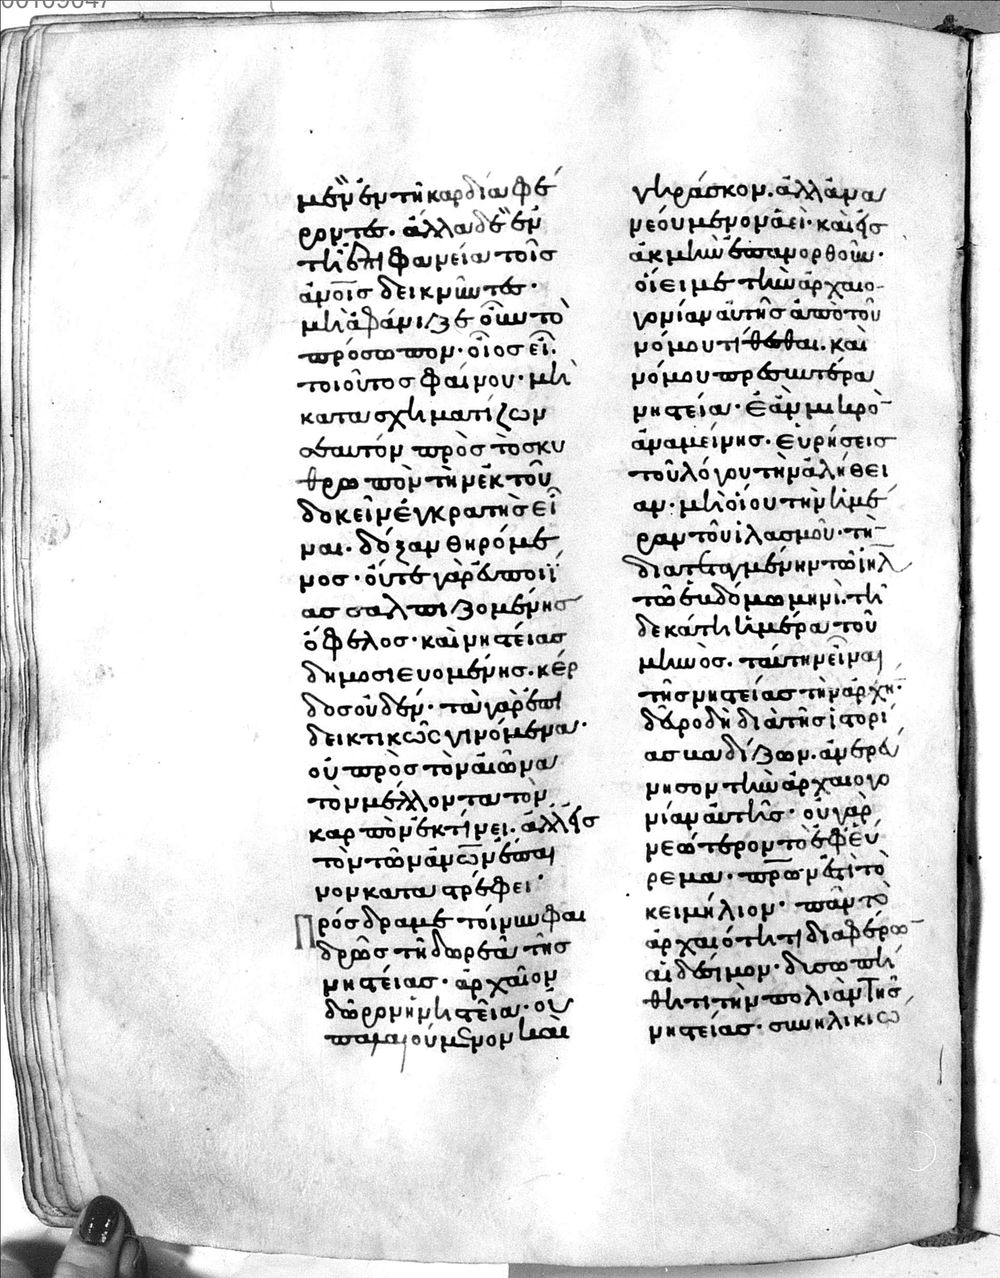 μὲν ἐν τῆ καρδία φέ
ροντες. ἄλλα δὲ ἐν
τῆ ἐπιφανεία τοῖς
ἀνοις δεικνῦντες·
μὴ ἀφάνιζε οὖν τὸ
πρόσωπον· οἷος εἶ.
τοιοῦτος φαίνου· μὴ
κατασχηματίζων
σεαυτὸν πρὸς τὸ σκυ
θρωπὸν τὴν ἐκ τοῦ
δοκεῖν ἐγκρατὴς εἶ
ναι· δόξαν θηρόμε
νος· οὔτε γὰρ εὐποιΐ
ας σαλπιζομένης
ὄφελος· καὶ νηστείας
δημοσιευομένης. κέρ
δος οὐδέν· τὰ γὰρ ἐπι
δεικτικῶς γινόμενα·
οὐ πρὸς τὸν αἰῶνα
τὸν μέλλοντα τὸν
καρπὸν ἐκτίνει. ἀλλ' εἰς
τὸν τῶν ἀνων ἔπαι
νον καταστρέφει·
Πρόσδραμε τοίνυν φαι
δρῶς τῆ δωρεᾶ τῆς
νηστείας· ἀρχαῖον
δῶρον ἡ νηστεία· οὐ
παλαιούμενον καὶ
γηράσκον. ἀλλ' ἀνα
νεούμενον ἀεὶ· καὶ εἰς
ἀκμὴν ἐπανορθοῦν·
οἴει με τὴν ἀρχαιο
γονίαν αὐτῆς ἀπὸ τοῦ
νόμου τίθεσθαι. καὶ
νόμου πρεσβυτέρα
νηστεία· Ἐὰν μικρὸ
ἀναμείνης. Εὑρήσεις
τοῦ λόγου τὴν ἀλήθει
αν· μὴ οἴου τὴν ἡμέ
ραν τοῦ ἱλασμοῦ· τὴ
διατεταγμένην τῶ ιηλ
τῶ ἑβδόμω μηνὶ. τῆ
δεκάτη ἡμέρα τοῦ
μηνὸς. ταύτην εἶναι
τῆς νηστείας τὴν ἀρχὴ·
δεῦρο δὴ διὰ τῆς ἱστορί
ας βαδίζων. ἀνερεύ
νησον τὴν ἀρχαιογο
νίαν αὐτῆς· οὐ γὰρ
νεώτερον τὸ ἐφεύ
ρεμα· πρων ἐστὶ τὸ
κειμήλιον· πᾶν τὸ
ἀρχαιότητι διαφέρω
αἰδέσιμον· δυσωπή
θητι τὴν πολιὰν τῆς
νηστείας· συνηλικιῶ